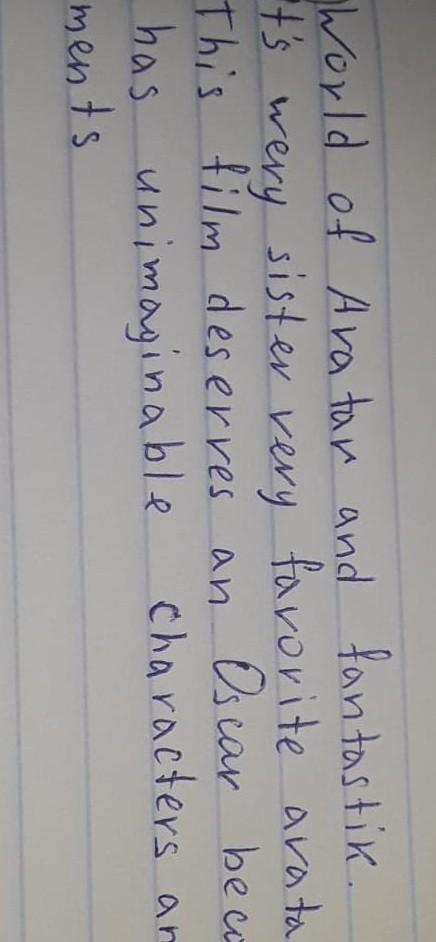 World of Avatar and fantastik.
t's wery sister very favorite avata
This film deserves an Oscar beca
has unimaginable characters an
ments